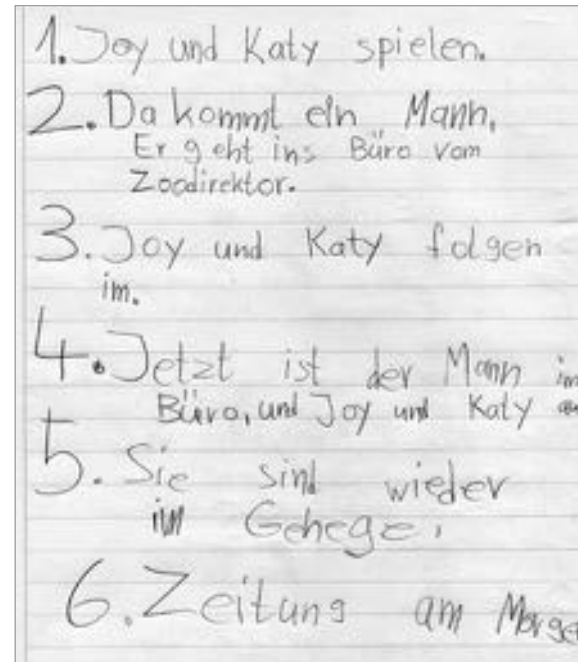 1. Joy und Katy spielen.
2. Da kommt ein Mann.
Er geht ins Büro vom
Zoodirektor.
3. Joy und Katy folgen
im.
4. Jetzt ist der Mann im
Büro, und Joy und Katy
5. Sie sind wieder
im Gehege.
6. Zeitung am